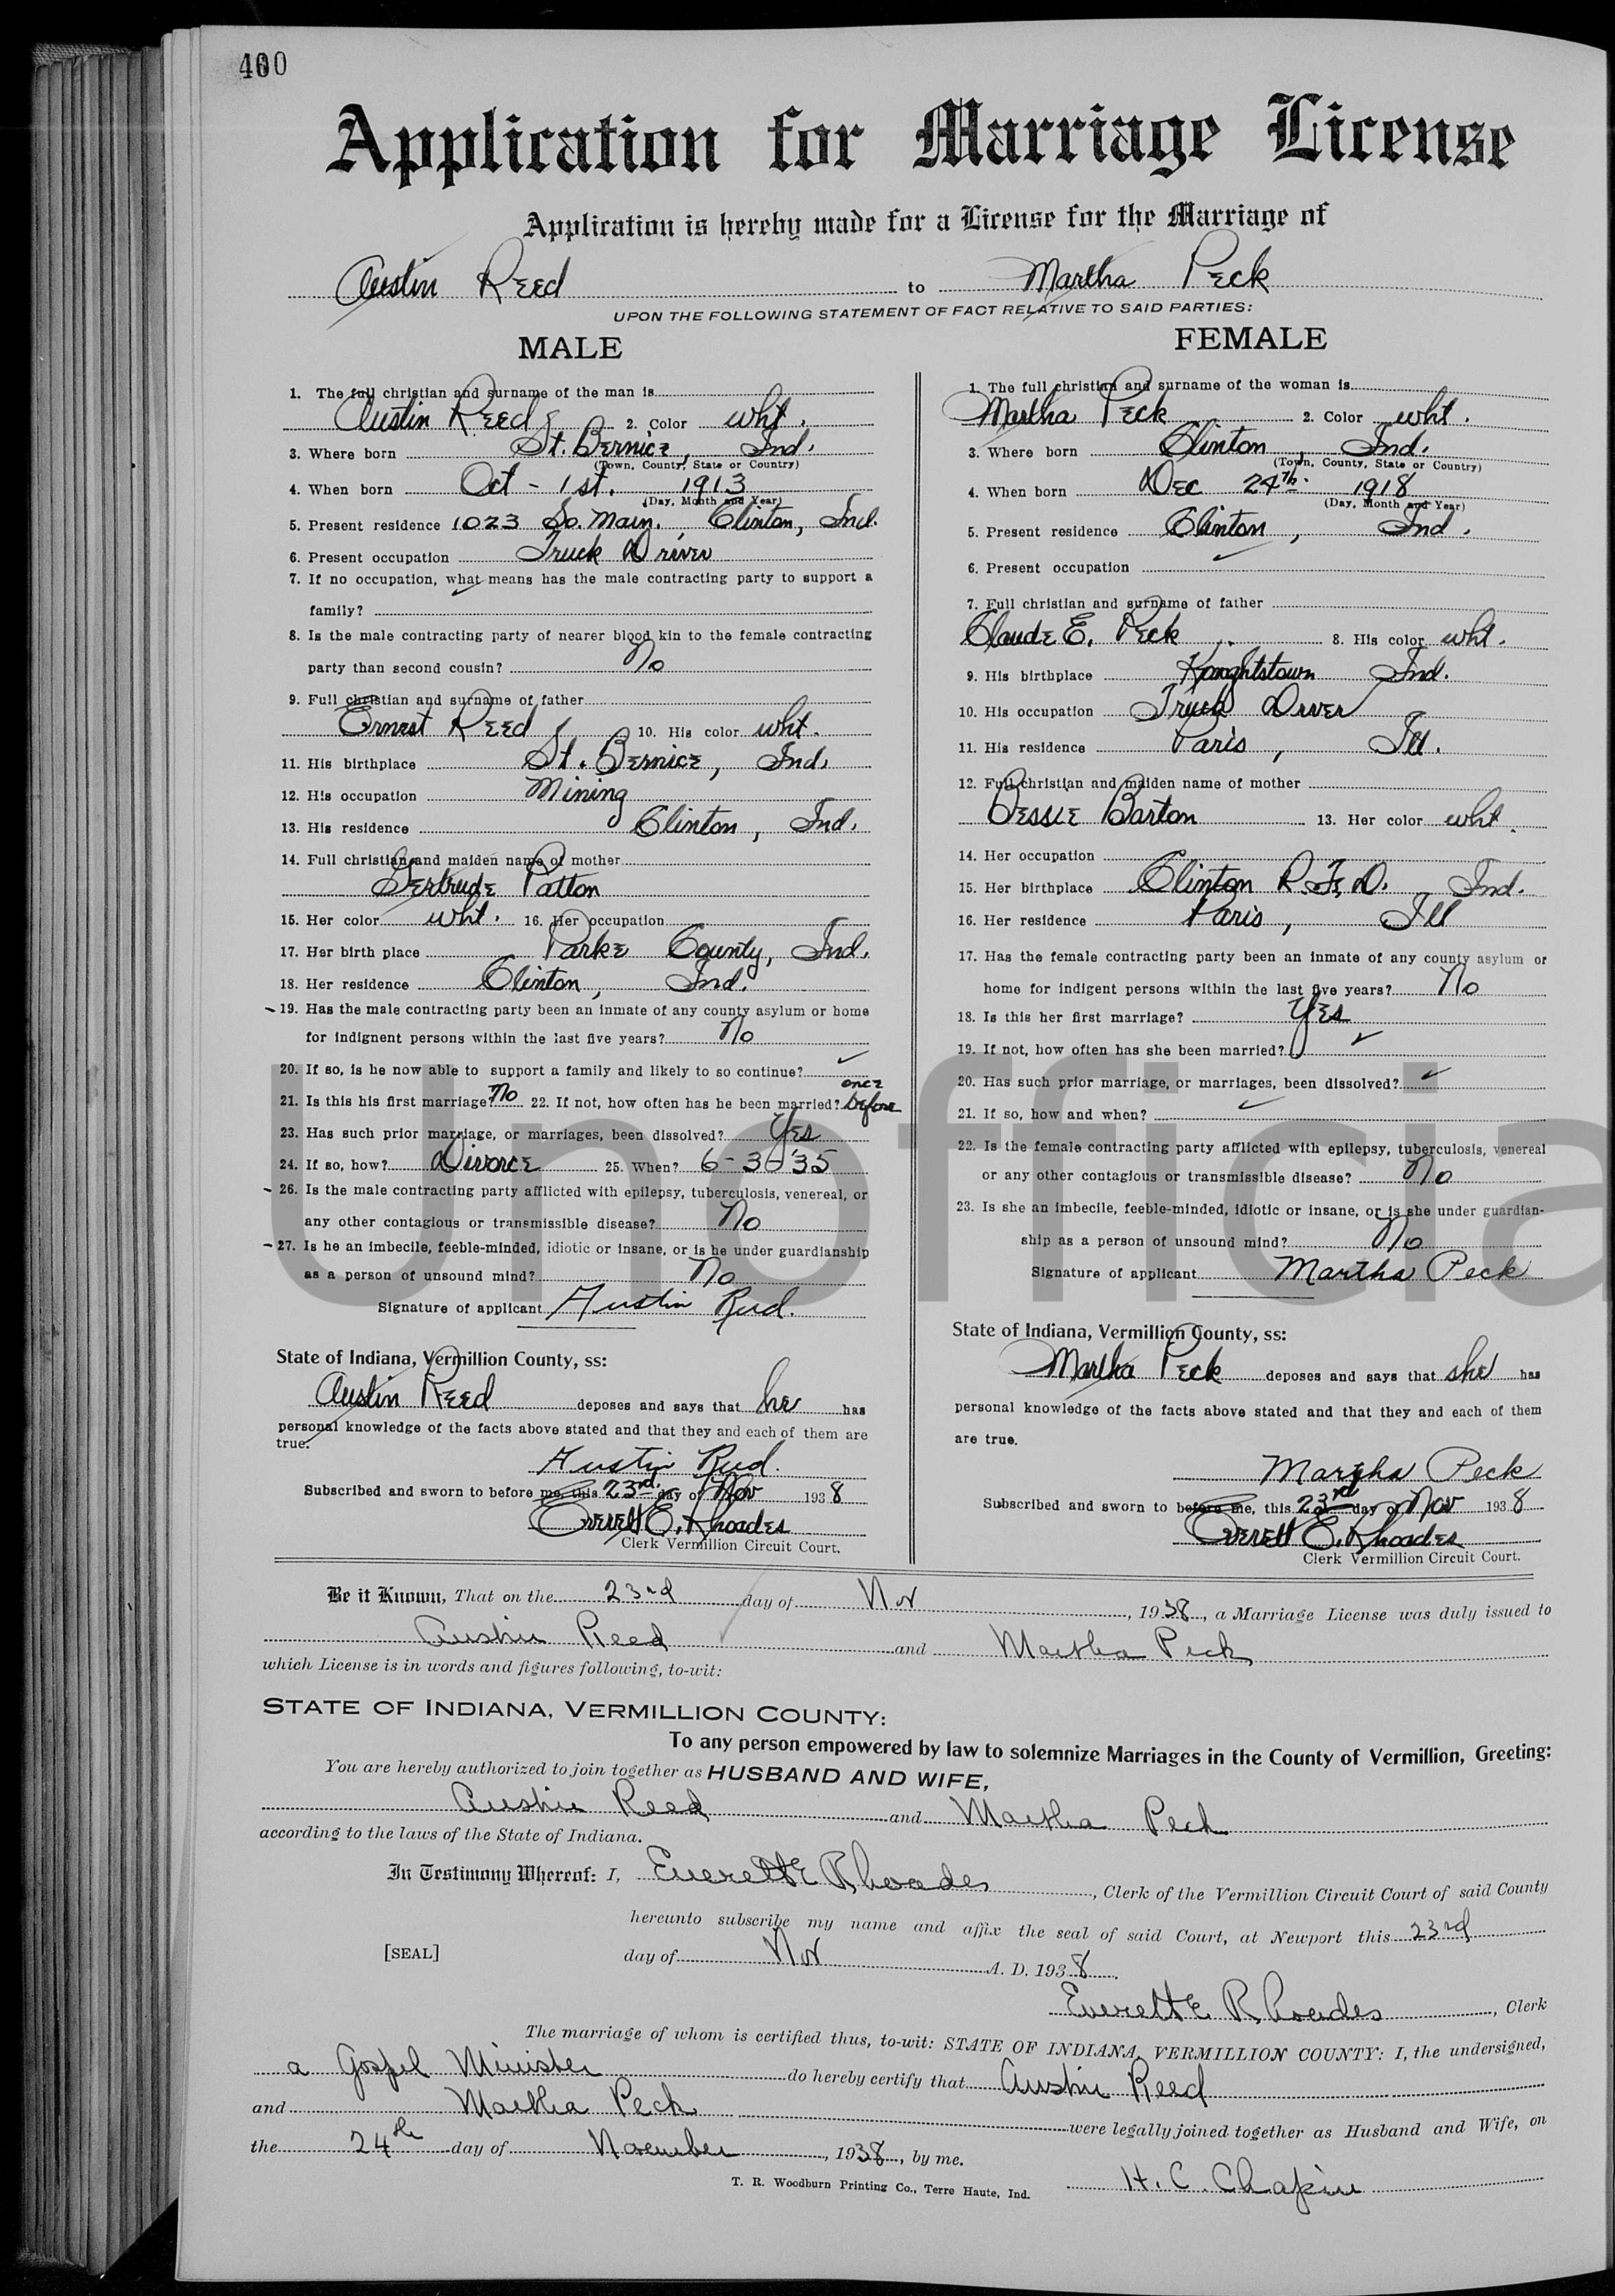 400
Application for Marriage License
Application is hereby made for a License for the Marriage of
Austin Reed to Martha Peck
UPON THE FOLLOWING STATEMENT OF FACT RELATIVE TO SAID PARTIES:
MALE
1. The full christian and surname of the man is
Austin Reed 2. Color wht.
3. Where born St. Bernice, Ind.
(Town, County, State or Country)
4. When born Oct - 1st. 1913
(Day, Month and Year)
5. Present residence 1023 So. Main. Clinton, Ind.
6. Present occupation Truck Driver
7. If no occupation, what means has the male contracting party to support a
family?
8. Is the male contracting party of nearer blood kin to the female contracting
party than second cousin? No
9. Full christian and surname of father
Ernest Reed 10. His color wht.
11. His birthplace St. Bernice, Ind.
12. His occupation Mining
13. His residence Clinton, Ind.
14. Full christian and maiden name of mother
Gertrude Patton
15. Her color wht. 16. Her occupation
17. Her birth place Parke County, Ind.
18. Her residence Clinton, Ind.
19. Has the male contracting party been an inmate of any county asylum or home
for indignent persons within the last five years? No
20. If so, is he now able to support a family and likely to so continue?
once
21. Is this his first marriage? No 22. If not, how often has he been married? before
23. Has such prior marriage, or marriages, been dissolved? Yes
24. If so, how? Divorce 25. When? 6-3-'35
26. Is the male contracting party afflicted with epilepsy, tuberculosis, venereal, or
any other contagious or transmissible disease? No
27. Is he an imbecile, feeble-minded, idiotic or insane, or is he under guardianship
as a person of unsound mind? No
Signature of applicant Austin Reed.
State of Indiana, Vermillion County, ss:
Austin Reed deposes and says that he has
personal knowledge of the facts above stated and that they and each of them are
true.
Austin Reed.
Subscribed and sworn to before me, this 23rd. day of Nov 1938
Everett E. Rhoades
Clerk Vermillion Circuit Court.
FEMALE
1. The full christian and surname of the woman is
Martha Peck 2. Color wht.
3. Where born Clinton, Ind.
(Town, County, State or Country)
4. When born Dec 24th. 1918
(Day, Month and Year)
5. Present residence Clinton, Ind.
6. Present occupation
7. Full christian and surname of father
Claude E. Peck 8. His color wht.
9. His birthplace Knightstown Ind.
10. His occupation Truck Driver
11. His residence Paris, Ill.
12. Full christian and maiden name of mother
Bessie Barton 13. Her color wht.
14. Her occupation
15. Her birthplace Clinton R.F.D. Ind.
16. Her residence Paris, Ill
17. Has the female contracting party been an inmate of any county asylum or
home for indigent persons within the last five years? No
18. Is this her first marriage? Yes
19. If not, how often has she been married?
20. Has such prior marriage, or marriages, been dissolved?
21. If so, how and when?
22. Is the female contracting party afflicted with epilepsy, tuberculosis, venereal
or any other contagious or transmissible disease? No
23. Is she an imbecile, feeble-minded, idiotic or insane, or is she under guardian-
ship as a person of unsound mind? No
Signature of applicant Martha Peck
State of Indiana, Vermillion County, ss:
Martha Peck deposes and says that she has
personal knowledge of the facts above stated and that they and each of them
are true.
Martha Peck
Subscribed and sworn to before me, this 23rd day of Nov 1938
Everett E. Rhoades
Clerk Vermillion Circuit Court.
Be it Known, That on the 23rd day of Nov, 1938, a Marriage License was duly issued to
Austin Reed and Martha Peck
which License is in words and figures following, to-wit:
STATE OF INDIANA, VERMILLION COUNTY:
To any person empowered by law to solemnize Marriages in the County of Vermillion, Greeting:
You are hereby authorized to join together as HUSBAND AND WIFE,
Austin Reed and Martha Peck
according to the laws of the State of Indiana.
In Testimony Whereof: I, Everett E Rhoades, Clerk of the Vermillion Circuit Court of said County
hereunto subscribe my name and affix the seal of said Court, at Newport this 23rd
[SEAL] day of Nov A. D. 1938.
Everett E Rhoades, Clerk
The marriage of whom is certified thus, to-wit: STATE OF INDIANA, VERMILLION COUNTY: I, the undersigned,
a Gospel Minister do hereby certify that Austin Reed
and Martha Peck were legally joined together as Husband and Wife, on
the 24th day of November, 1938, by me.
T. R. Woodburn Printing Co., Terre Haute, Ind. H. C. Chapin
Unofficia